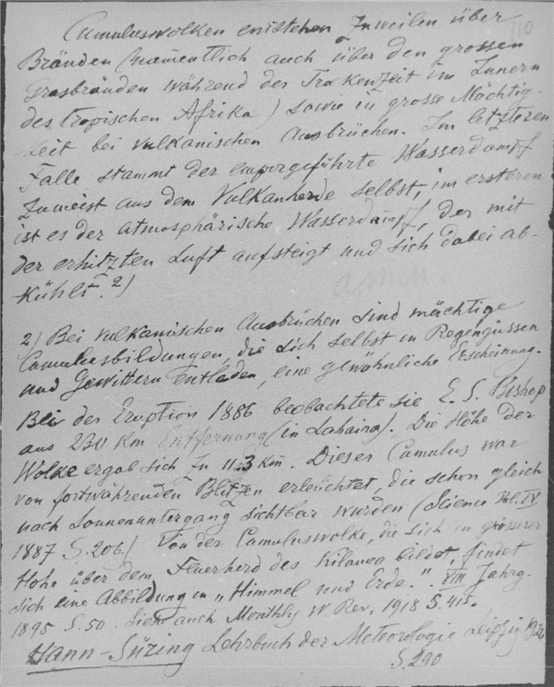 Cumuluswolken entstehen zuweilen über
Bränden (namentlich auch über den grossen
Grasbränden während der Trokenzeit im Innern
des tropischen Afrika) sowie in grosse Mächtig-
keit bei vulkanischen Ausbrüchen. Im letzteren
Falle stammt der emporgeführte Wasserdampf
zumeist aus dem Vulkanherde selbst, im ersteren
ist es der atmosphärische Wasserdampf, der mit
der erhitzten Luft aufsteigt und sich dabei ab-
kühlt. 2)
2) Bei vulkanischen Ausbrüchen sind mächtige
Cumulusbildungen, die sich selbst in Regengüssen
und Gewittern entladen, eine gewöhnliche Erscheinung.
Bei der Eruption 1886 beobachtete sie E. S. Bishop
aus 230 km Entfernung (in Lahaina). Die Höhe der
Wolke ergab sich zu 11.3 km. Dieser Cumulus war
von fortwährenden Blitzen erleuchtet, die schon gleich
nach Sonnenuntergang sichtbar wurden (Science Vol. IX
1887 S. 206.) Von der Cumuluswolke, die sich in grösserer
Höhe über dem Feuerherd des Kilauea bildet, findet
sich eine Abbildung in "Himmel und Erde." VIII Jahrg.
1895 S. 50. Siehe auch Monthly W. Rev. 1918 S.
Hann-Süring Lehrbuch der Meteorologie Leipzig
S. 290